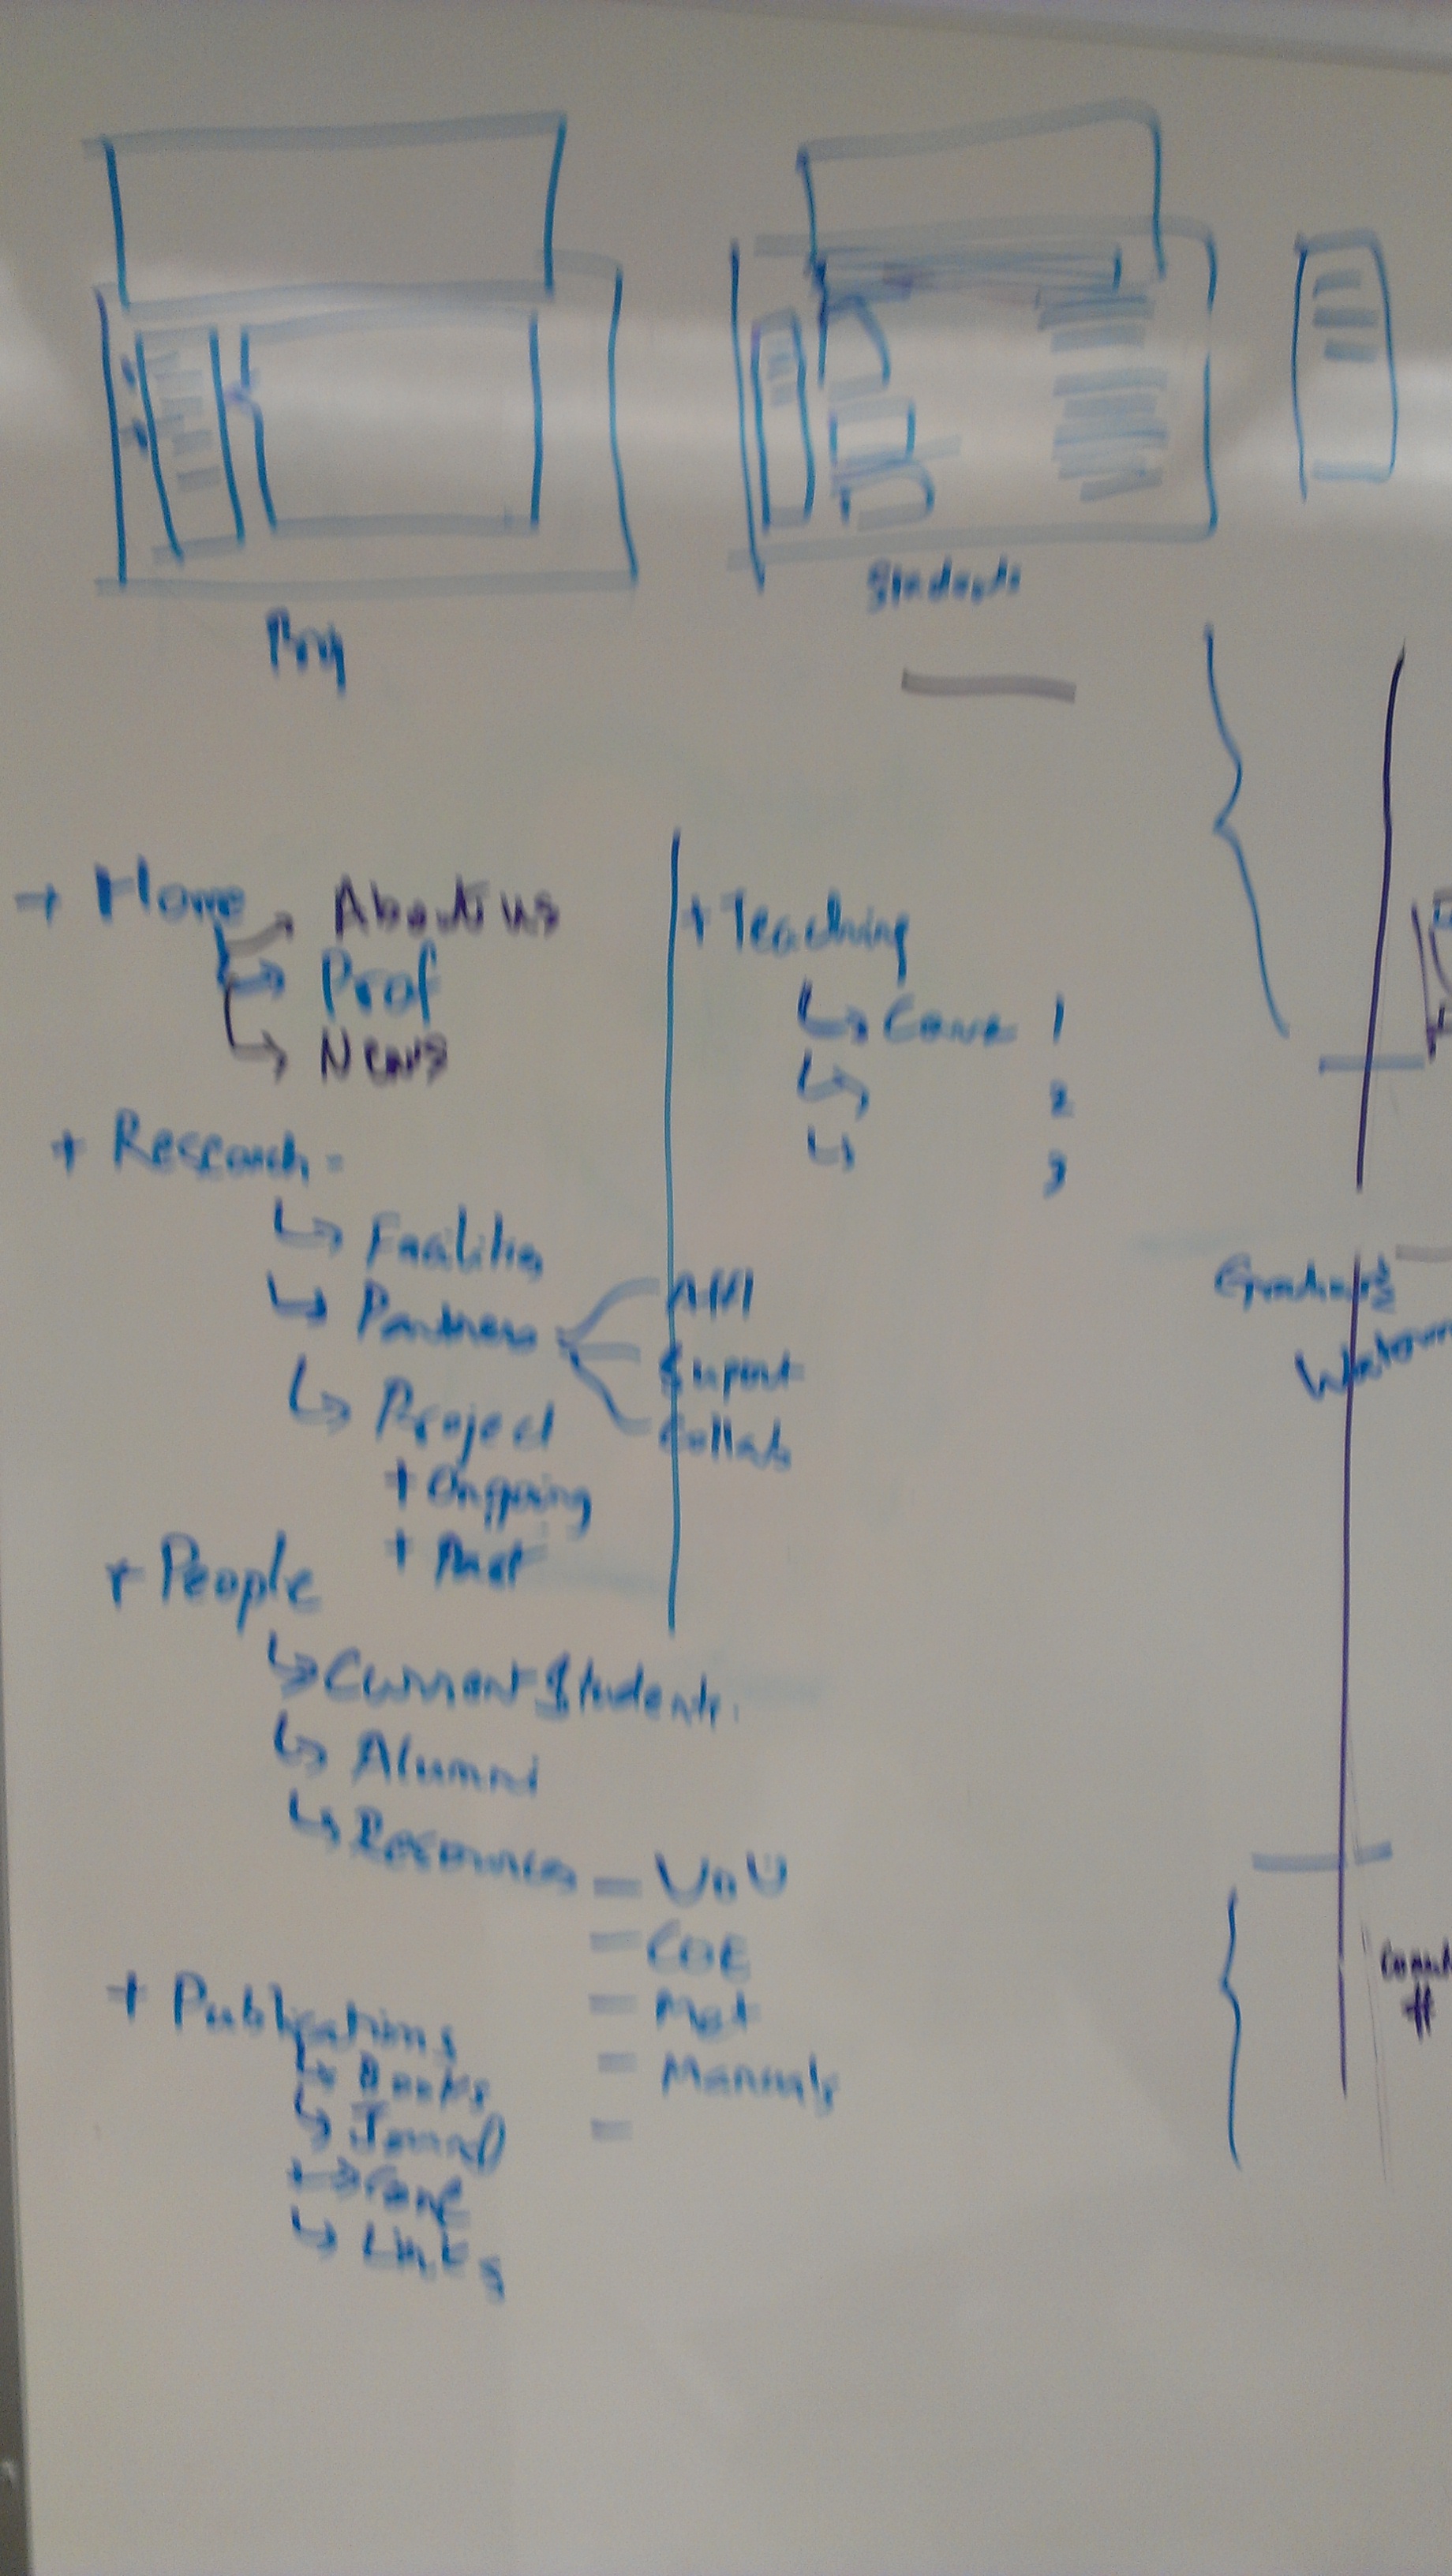 Students
+ Home
About us
Prof
News
+ Research
Facilities
Partners
Support
Collab
Project
+ Ongoing
+ Past
+ People
Current Students
Alumni
Resources
COE
Manuals
+ Publications
Books
Journal
Conf
Links
+ Teaching
1
2
3
#